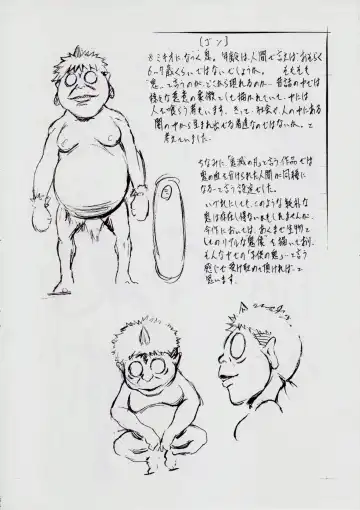 [ゴン]
※ミキオになつく鬼。年齢は、人間で言えば、おそらく
6〜7歳くらいではないでしょうか。 そもそも
鬼って言うのが、どこから現れるのか… 昔話の中では
様々な悪意の象徴としても描かれていて、中には
人を喰らう者もいます。きっと、社会や、人の中にある
闇の中から生まれ出でる者達なのではないか、と
考えていました。
ちなみに「鬼滅の刃」って言う作品では
鬼の血を分けられた人間が同様に
なるって言う設定でした。
いずれにしても、このような純朴な
鬼は存在し得ないかもしれませんが、
今作においては、あくまで生物と
してのリアルな鬼像を描いており、
そんな中での「子供の鬼」って言う
感じで受け取めて頂ければ、と
思います。